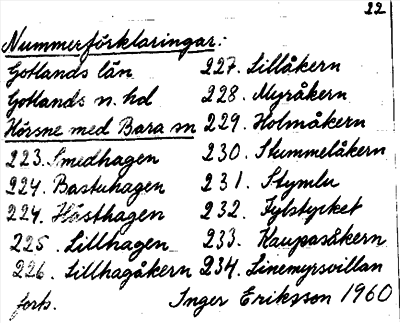 22
Nummerförklaringar:
Gotlands län
Gotlands n. hd
Hörsne med Bara sn
223. Smedhagen
224. Bastuhagen
224. Hästhagen
225. Lillhagen
226. Lillhagåkern
forts.
227. Lillåkern
228. Myråkern
229. Holmåkern
230. Stummelåkern
231. Stymlu
232. Fylstycket
233. Kaupasåkern
234. Linemyrsvillan
Inger Eriksson 1960